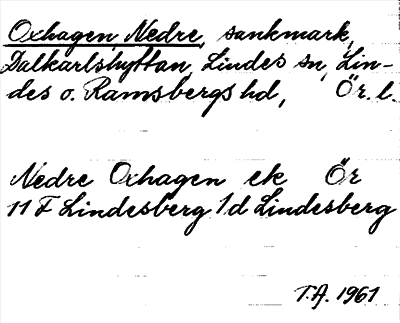 Oxhagen Nedre, sankmark,
Dalkarlshyttan, Lindes sn, Lin-
des o. Ramsbergs hd, Ör. l.
Nedre Oxhagen ek Ör
11 F Lindesberg 1 d Lindesberg
T.A. 1961